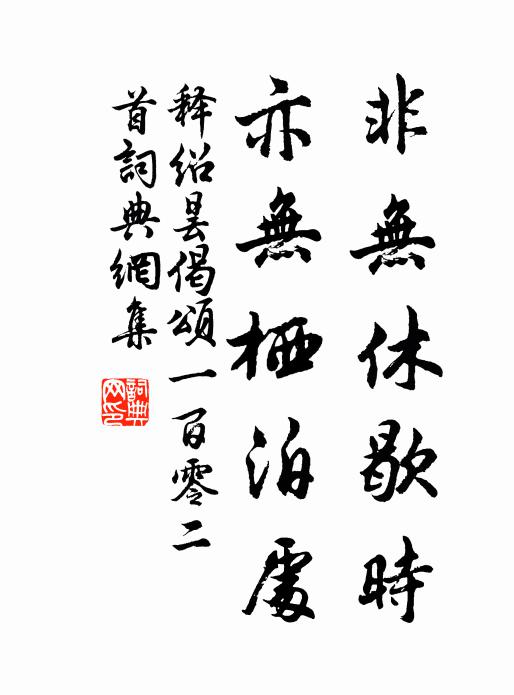 非無休歇時
亦無栖泊處
释紹曇偈頌一百零二
首詞典網集
詞典網印